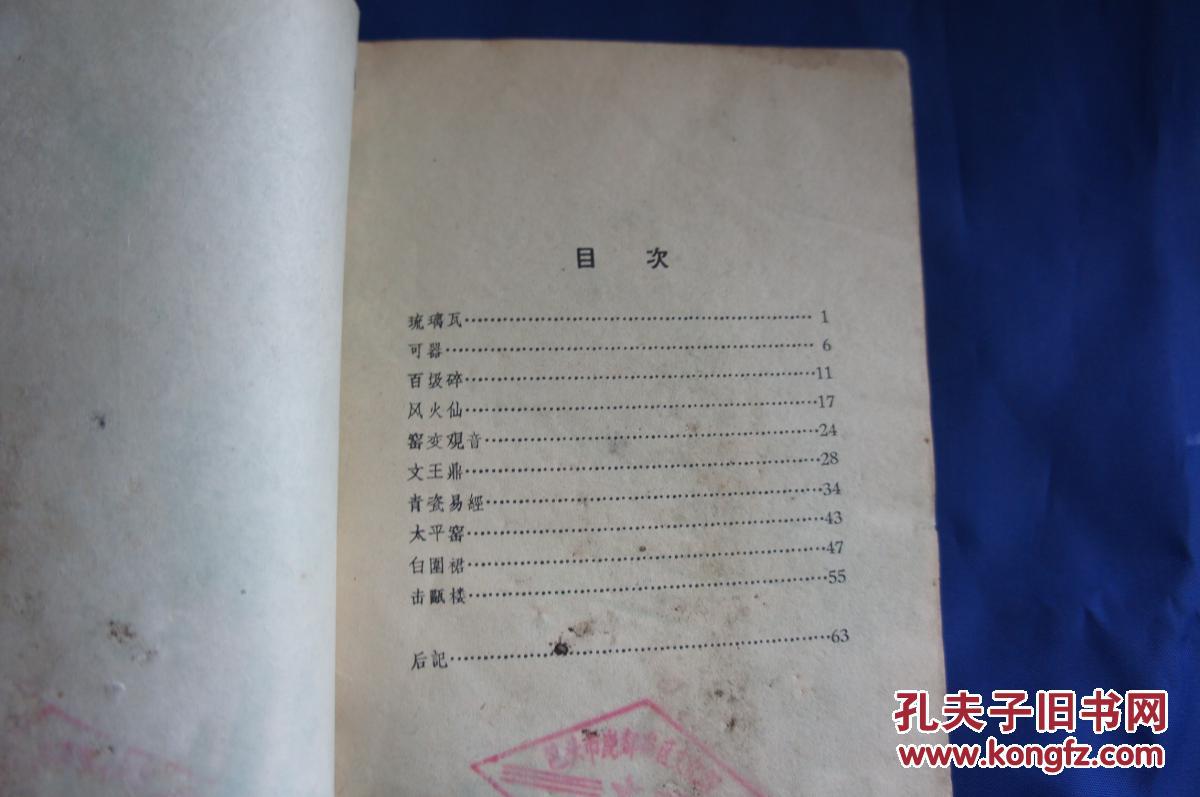 目 次
琉璃瓦……………………………………………… 1
可器………………………………………………… 6
百圾碎………………………………………………11
风火仙………………………………………………17
窰变观音……………………………………………24
文王鼎………………………………………………28
青瓷易經……………………………………………34
太平窰………………………………………………43
白圍裙………………………………………………47
击甌楼………………………………………………55
后記…………………………………………………63
孔夫子旧书网
www.kongfz.com